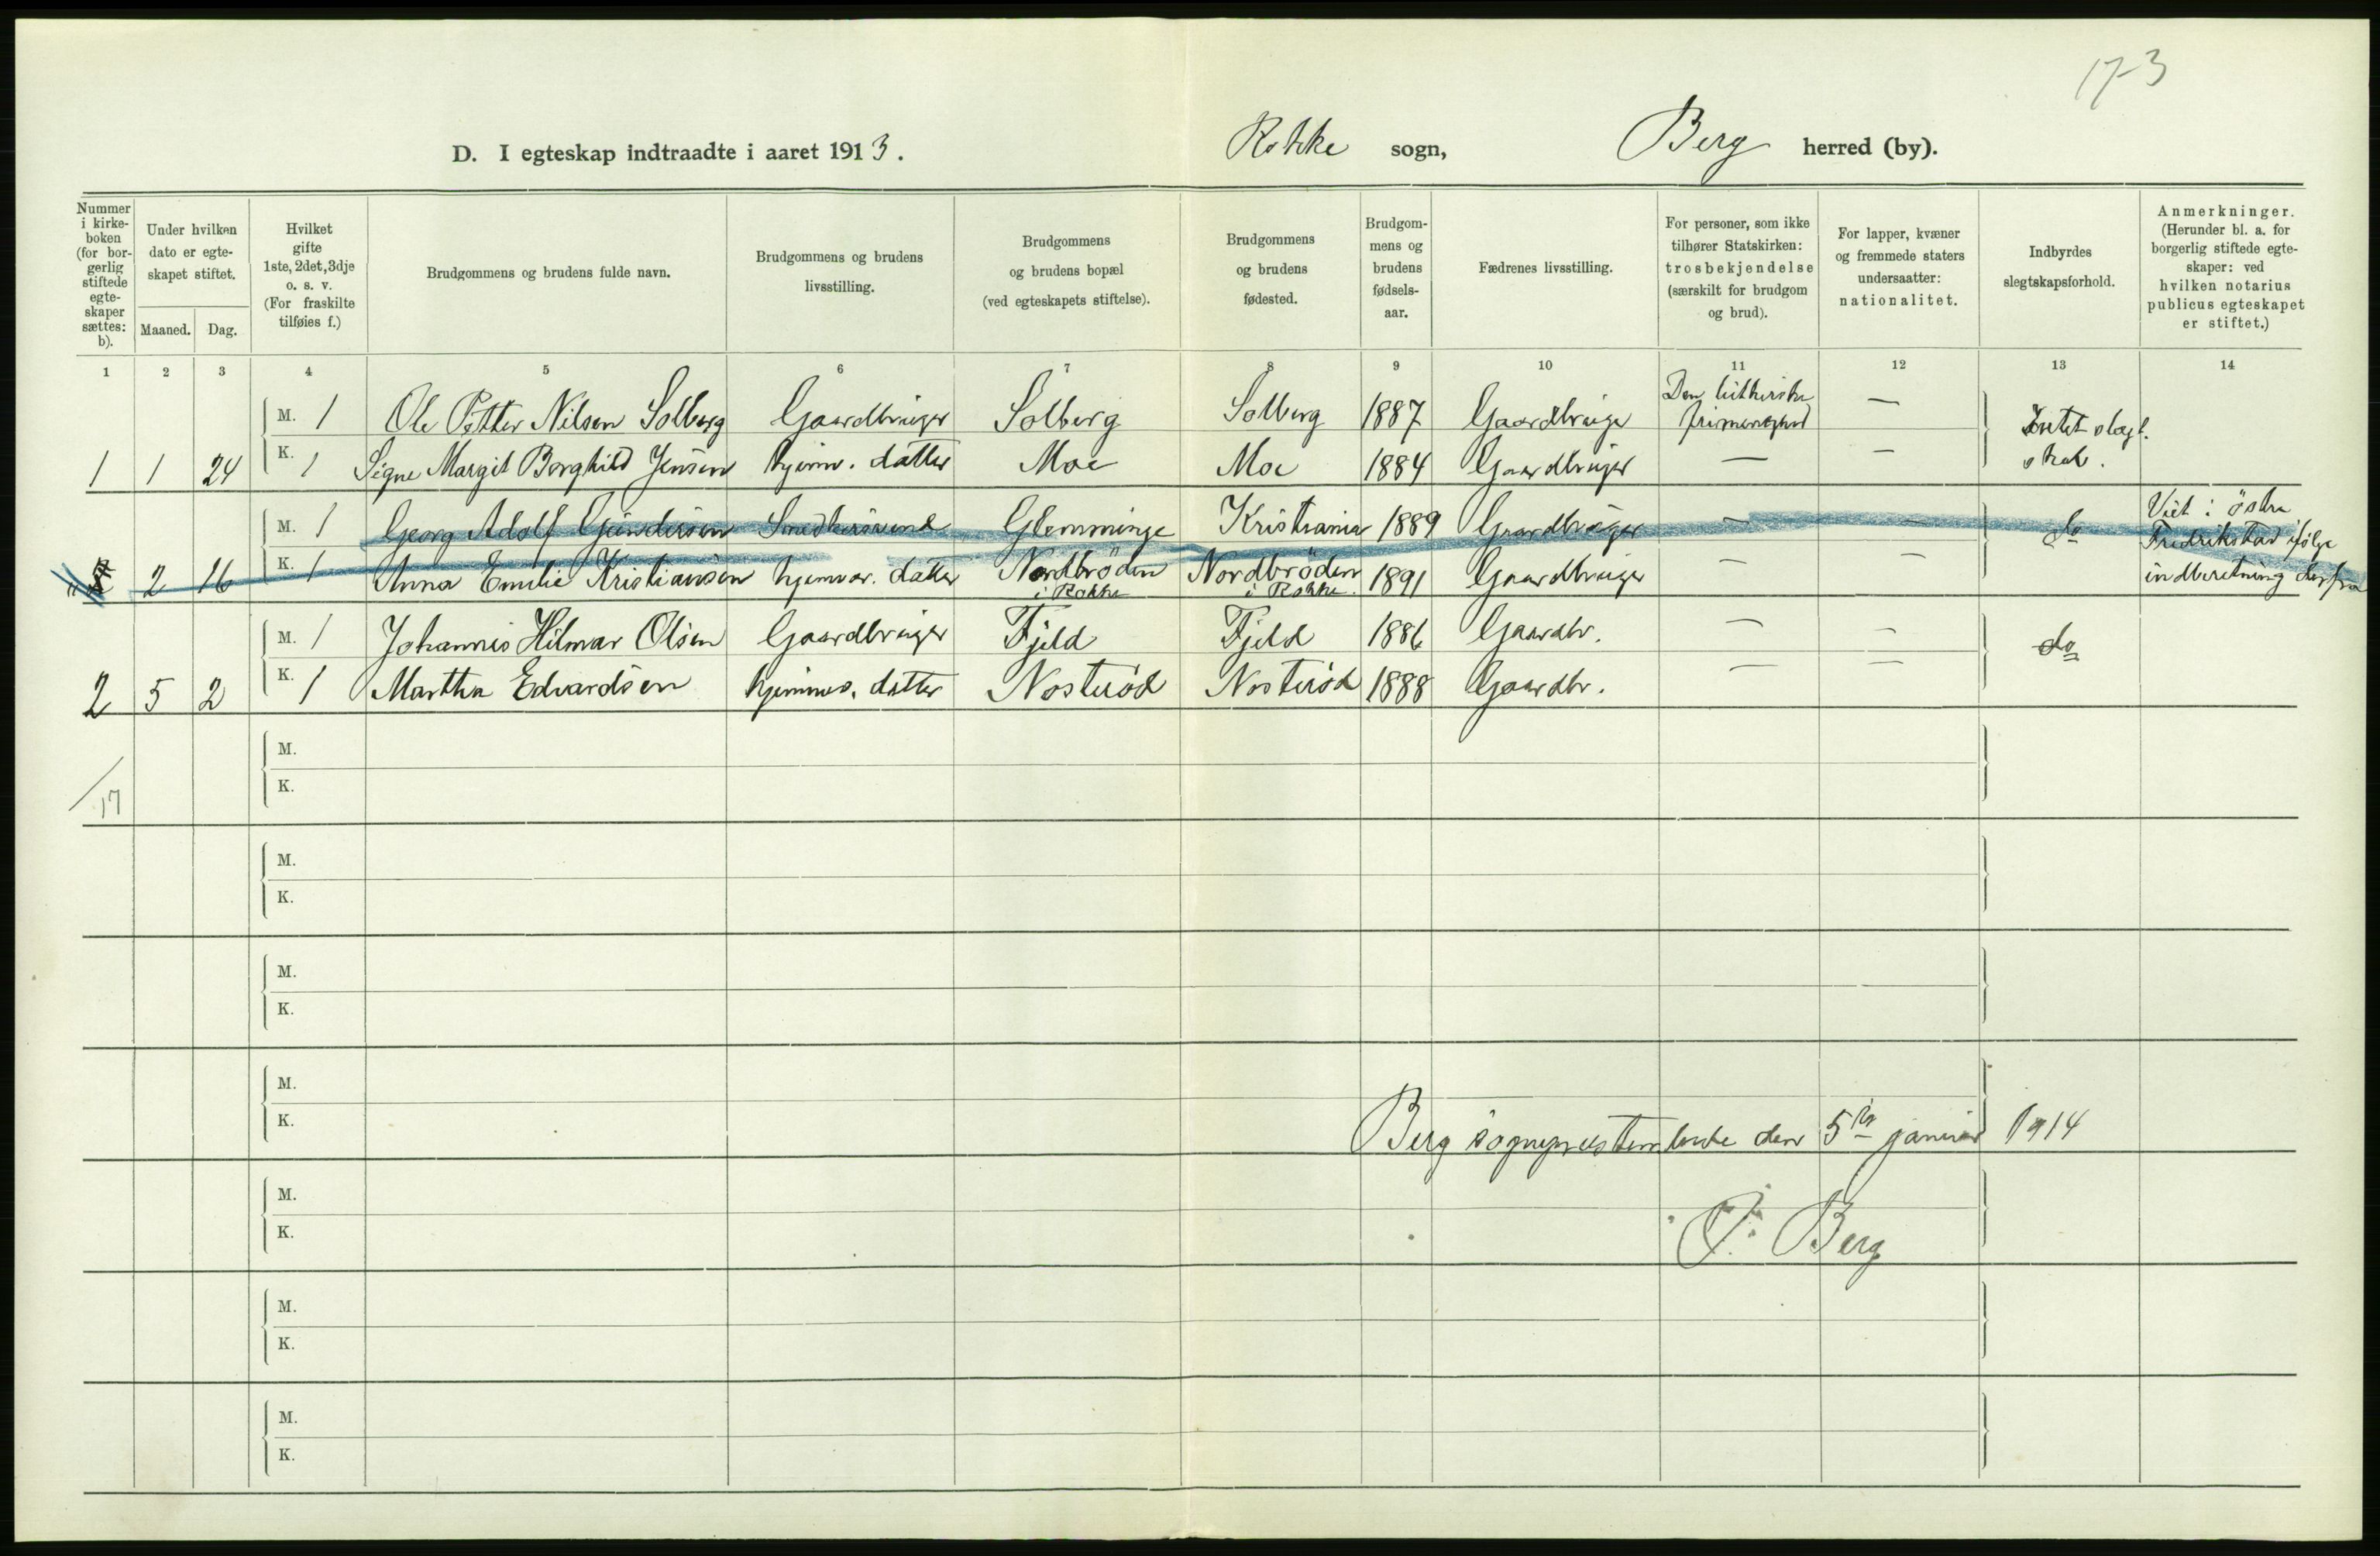 17-3
D. I egteskap indtraadte i aaret 1913. Rokke sogn, Berg herred (by).
Nummer i kirkeboken (for borgerlig stiftede egteskaper sættes: b).
Under hvilken dato er egteskapet stiftet.
Maaned. Dag.
Hvilket gifte 1ste, 2det, 3dje o. s. v. (For fraskilte tilføies f.)
Brudgommens og brudens fulde navn.
Brudgommens og brudens livsstilling.
Brudgommens og brudens bopæl (ved egteskapets stiftelse).
Brudgommens og brudens fødested.
Brudgommens og brudens fødselsaar.
Fædrenes livsstilling.
For personer, som ikke tilhører Statskirken: trosbekjendelse (særskilt for brudgom og brud).
For lapper, kvæner og fremmede staters undersaatter: nationalitet.
Indbyrdes slegtskapsforhold.
Anmerkninger. (Herunder bl. a. for borgerlig stiftede egteskaper: ved hvilken notarius publicus egteskapet er stiftet.)
1 2 3 4 5 6 7 8 9 10 11 12 13 14
M. 1 Ole Petter Nilsen Solberg Gaardbruger Solberg Solberg 1887 Gaardbruger Den lutherske frimenighed — Intet slægtskab.
1 1 24 K. 1 Signe Margit Borghild Jensen hjemv. datter Moe Moe 1884 Gaardbruger — —
M. 1 Georg Adolf Gundersen Smedkersvend Glemminge Kristiania 1889 Gaardbruger — — do Viet i östre Fredrikstad ifølge indberetning derfra
2 16 K. 1 Anna Emilie Kristiansen hjemv. datter Nordbröden i Rokke Nordbröden i Rokke. 1891 Gaardbruger — —
M. 1 Johannes Hilmar Olsen Gaardbruger Fjeld Fjeld 1886 Gaardbr. — — do
2 5 2 K. 1 Martha Edvardsen hjemmev. datter Nosteröd Nosteröd 1888 Gaardbr. — —
M.
K.
17
M.
K.
M.
K.
M.
K.
Berg sogneprestembede den 5te januar 1914
M.
K.
P. Berg
M.
K.
M.
K.